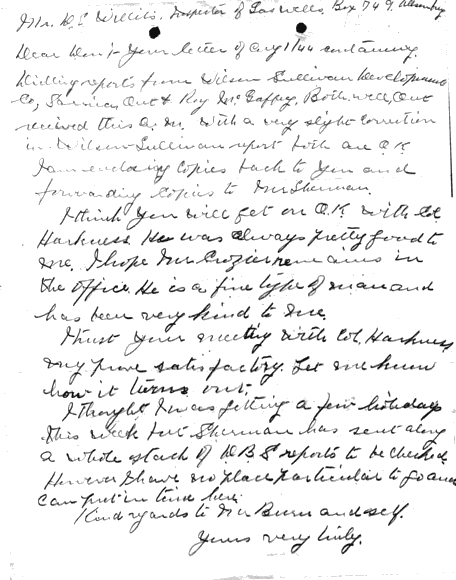 Mr. D.S. Willits, Inspector of Gas Wells, Box 749,
Dear Don:- Your letter of Aug 1/44 containing
Drilling reports from Wilson Sullivan Development
Co, Sarnia, Ont & Roy McGaffey, Bothwell, Ont
received this A.M. With a very slight correction
in Wilson Sullivan report both are O.K.
I am enclosing copies back to you and
forwarding copies to Mr Sherman.
I think you will get on O.K. with Col.
Harkness. He was always pretty good to
me. I hope Mr Crozier remains in
the office. He is a fine type of man and
has been very kind to me.
I trust your meeting with Col. Harkness
may prove satisfactory. Let me know
how it turns out.
I thought I was getting a few holidays
this week but Sherman has sent along
a whole stack of D B S reports to be checked
However I have no place particular to go and
can put in time here.
Kind regards to Mr Burn and self.
Yours very truly.